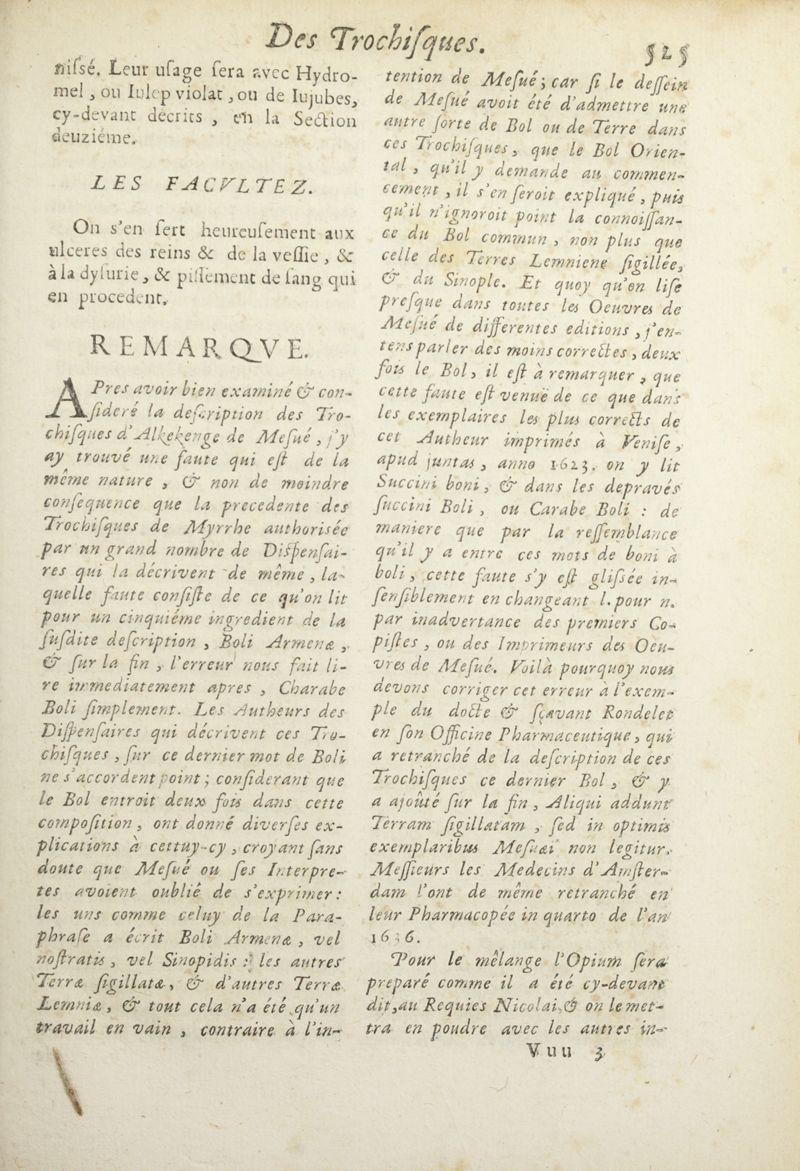 Des Trochiſques. 525
niſsé. Leur uſage ſera avec Hydro-
mel, ou Iulep violat, ou de Iujubes,
cy-devant décrits, en la Section
deuziéme.
LES FACVLTEZ.
On s'en ſert heureuſement aux
ulceres des reins & de la veſſie, &
à la dyſurie, & piſſement de ſang qui
en procedent.
REMARQVE.
APres avoir bien examiné & con-
ſideré la deſcription des Tro-
chiſques d'Alkekenge de Meſué, j'y
ay trouvé une faute qui eſt de la
même nature, & non de moindre
conſequence que la precedente des
Trochiſques de Myrrhe authorisée
par un grand nombre de Diſpenſai-
res qui la décrivent de même, la-
quelle faute conſiſte de ce qu'on lit
pour un cinquiéme ingredient de la
ſuſdite deſcription, Boli Armenæ,
& ſur la fin, l'erreur nous fait li-
re immediatement apres, Charabe
Boli ſimplement. Les Autheurs des
Diſpenſaires qui décrivent ces Tro-
chiſques, ſur ce dernier mot de Boli
ne s'accordent point; conſiderant que
le Bol entroit deux fois dans cette
compoſition, ont donné diverſes ex-
plications à cettuy-cy, croyant ſans
doute que Meſué ou ſes Interpre-
tes avoient oublié de s'exprimer:
les uns comme celuy de la Para-
phraſe a écrit Boli Armenæ, vel
noſtratis, vel Sinopidis: les autres
Terræ ſigillatæ, & d'autres Terræ
Lemniæ, & tout cela n'a été qu'un
travail en vain, contraire à l'in-
tention de Meſué; car ſi le deſſein
de Meſué avoit été d'admettre une
autre ſorte de Bol ou de Terre dans
ces Trochiſques, que le Bol Orien-
tal, qu'il y demande au commen-
cement, il s'en ſeroit expliqué, puis
qu'il n'ignoroit point la connoiſſan-
ce du Bol commun, non plus que
celle des Terres Lemniene ſigillée,
& du Sinople. Et quoy qu'on liſe
preſque dans toutes les Oeuvres de
Meſué de differentes editions, j'en-
tens parler des moins correctes, deux
fois le Bol, il eſt à remarquer, que
cette faute eſt venuë de ce que dans
les exemplaires les plus corrects de
cet Autheur imprimés à Veniſe,
apud juntas, anno 1623. on y lit
Succini boni, & dans les depravés
ſuccini Boli, ou Carabe Boli: de
maniere que par la reſſemblance
qu'il y a entre ces mots de boni à
boli, cette faute s'y eſt gliſsée in-
ſenſiblement en changeant l. pour n.
par inadvertance des premiers Co-
piſtes, ou des Imprimeurs des Oeu-
vres de Meſué. Voilà pourquoy nous
devons corriger cet erreur à l'exem-
ple du docte & ſçavant Rondelet
en ſon Officine Pharmaceutique, qui
a retranché de la deſcription de ces
Trochiſques ce dernier Bol, & y
a ajoûté ſur la fin, Aliqui addunt
Terram ſigillatam, ſed in optimis
exemplaribus Meſuæi non legitur.
Meſſieurs les Medecins d'Amſter-
dam l'ont de même retranché en
leur Pharmacopée in quarto de l'an
1636.
Pour le mêlange l'Opium ſera
preparé comme il a été cy-devant
dit, au Requies Nicolai, & on le met-
tra en poudre avec les autres in-
Vuu 3